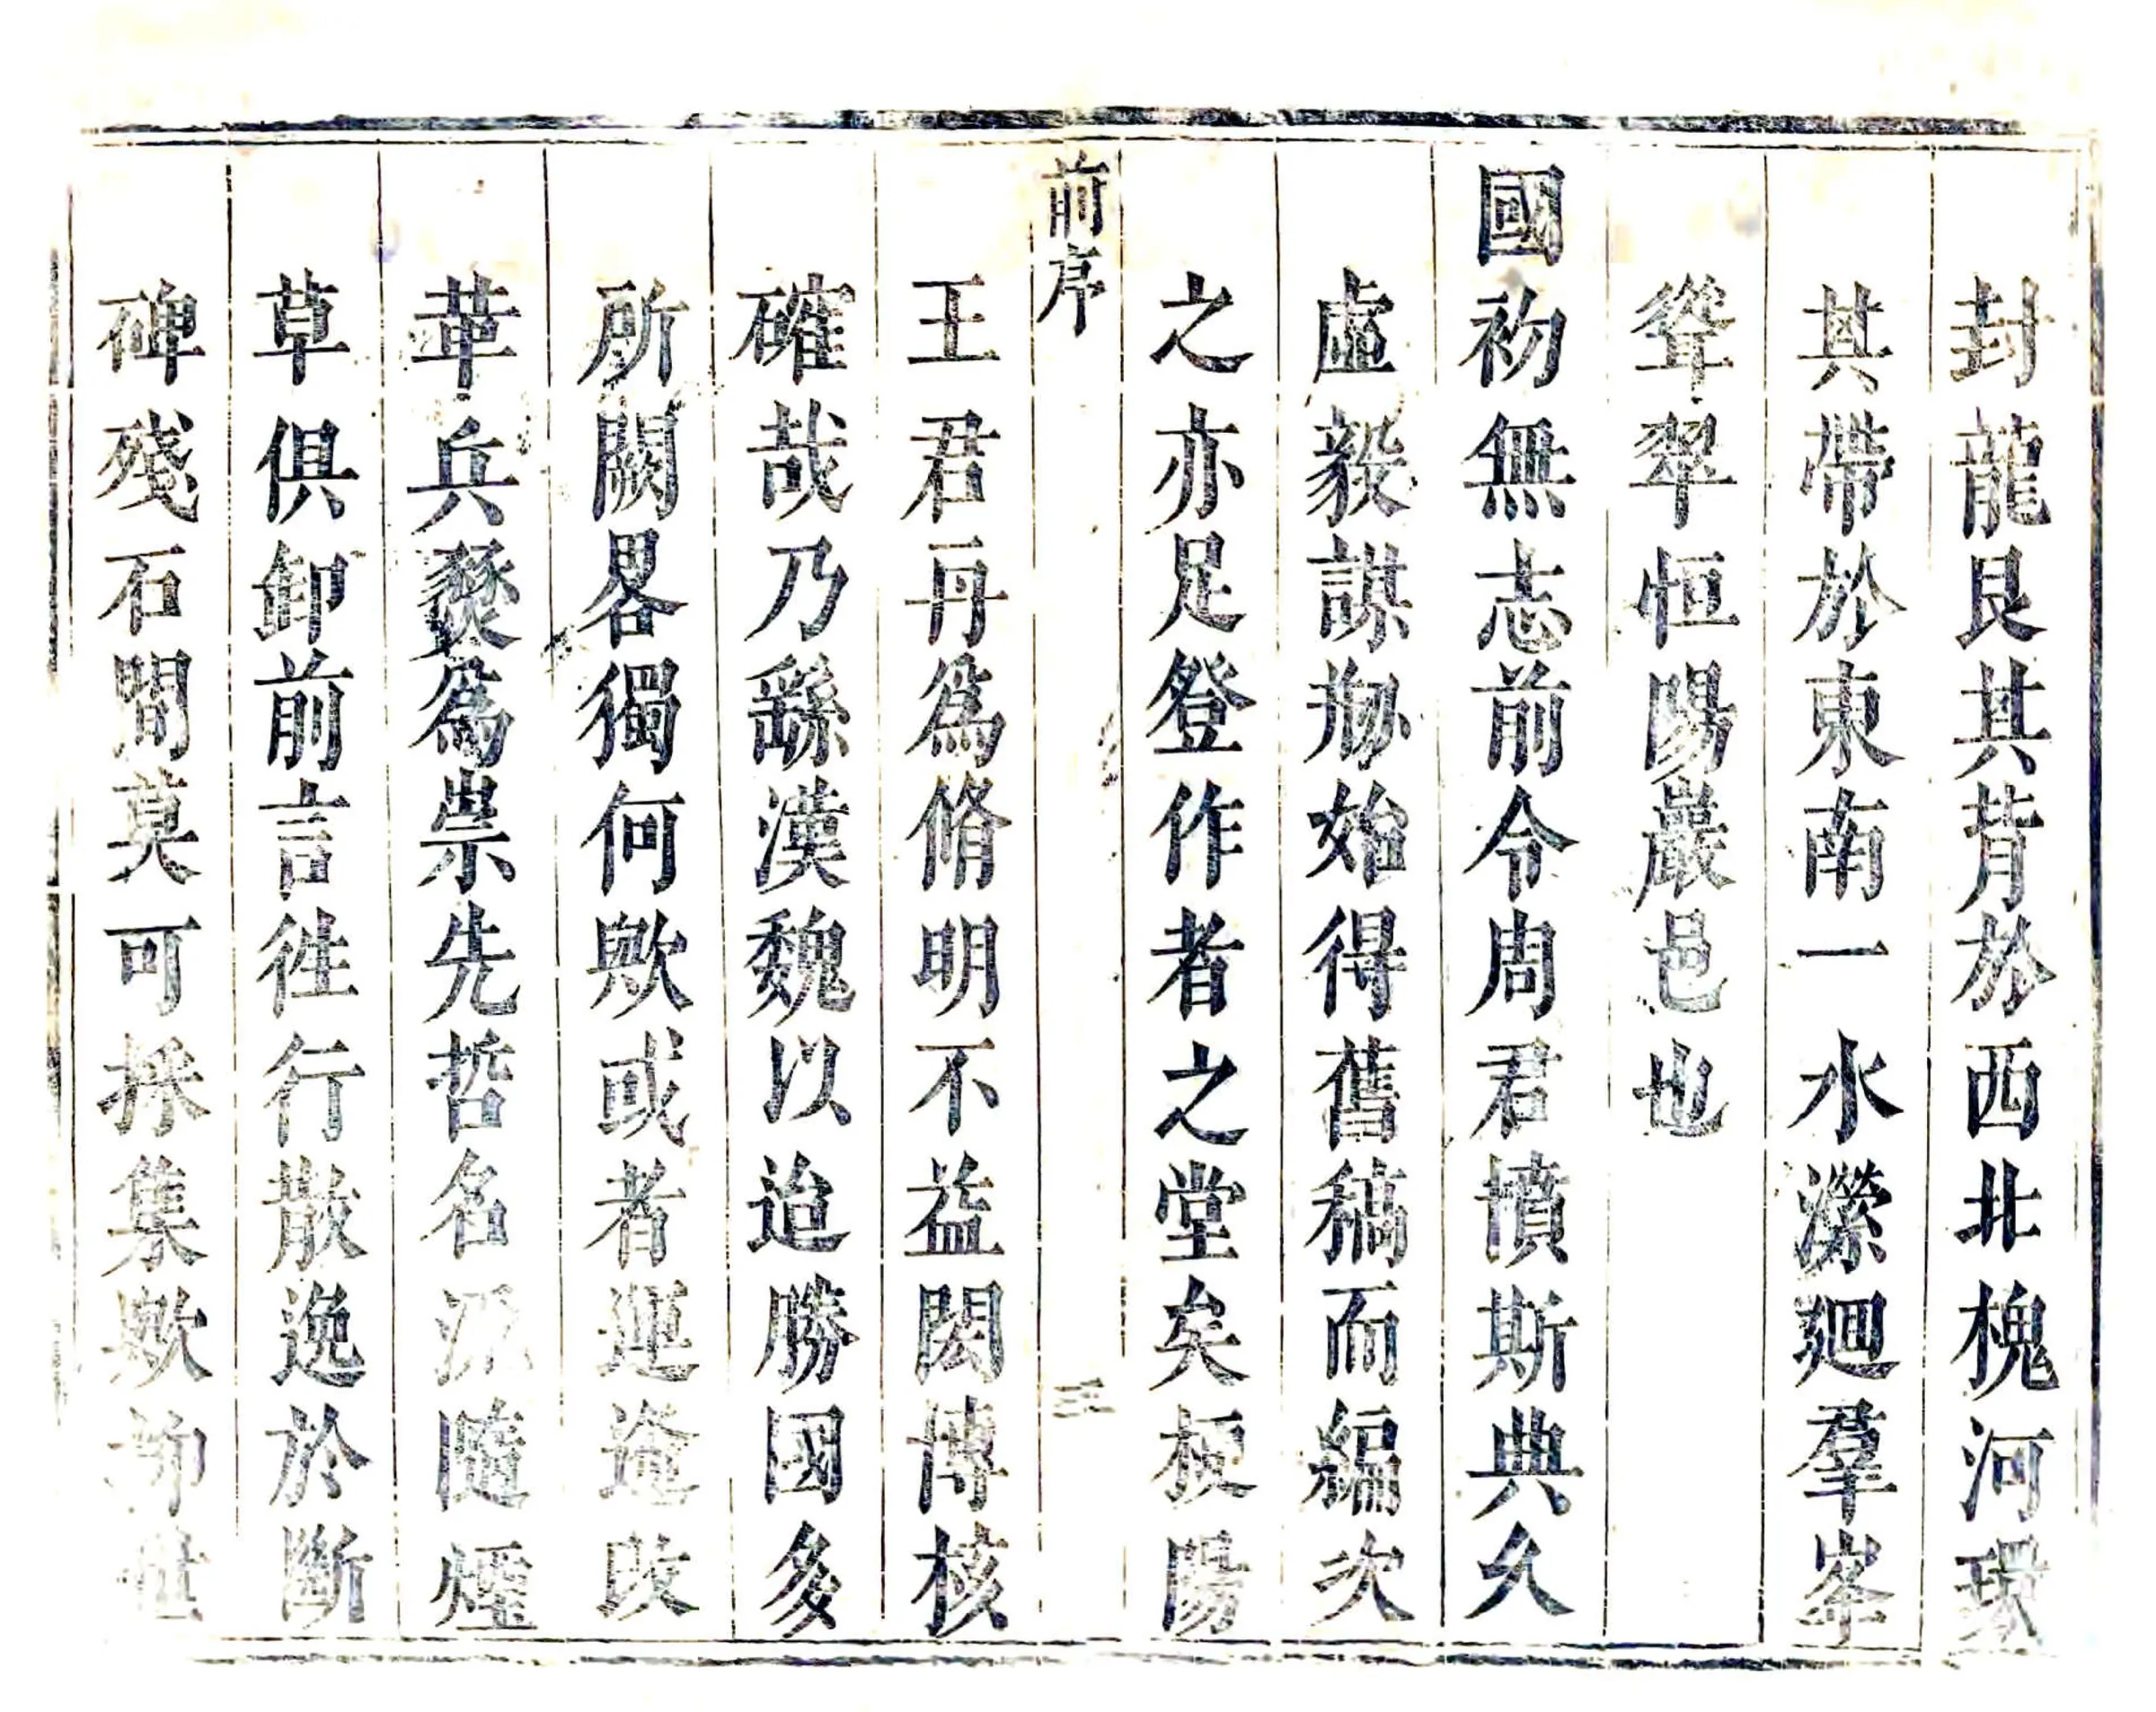 封龍艮其背於西北槐河環
其帶於東南一水瀠廻羣峯
聳翠恒陽巖邑也
國初無志前令周君憤斯典久
虛毅謀搦始得舊稿而編次
之亦足登作者之堂矣梗陽
前序 三
王君再爲脩明不益閎博核
確哉乃繇漢魏以迨勝國多
所闕畧獨何歟或者運逢改
革兵燹爲祟先哲名流隨煙
草俱卸前言徃行散逸於斷
碑殘石間莫可採集歟抑